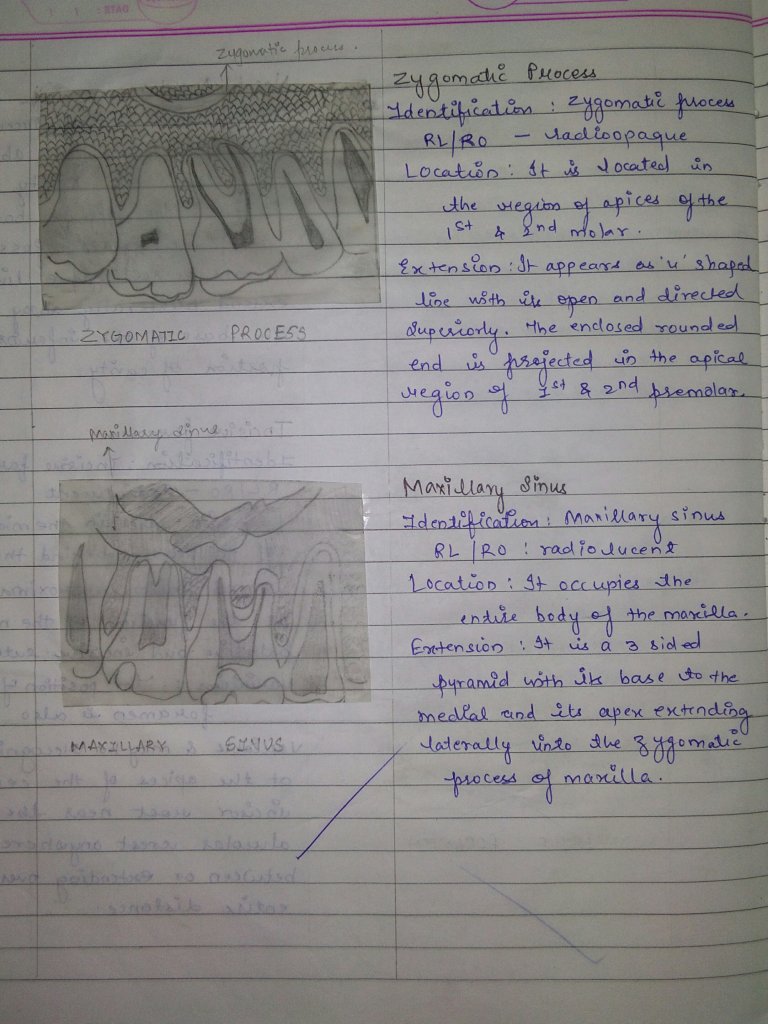 Zygomatic process.
Zygomatic Process
Identification : Zygomatic process
RL/RO – radioopaque
Location : It is located in
the region of apices of the
1st & 2nd molar.
Extension : It appears as 'u' shaped
line with is open and directed
superiorly. The enclosed rounded
end is projected in the apical
region of 1st & 2nd premolar.
ZYGOMATIC PROCESS
Maxillary Sinus
Maxillary Sinus
Identification : Maxillary sinus
RL/RO : radiolucent
Location : It occupies the
entire body of the maxilla.
Extension : It is a 3 sided
pyramid with its base to the
medial and its apex extending
laterally into the zygomatic
process of maxilla.
MAXILLARY SINUS